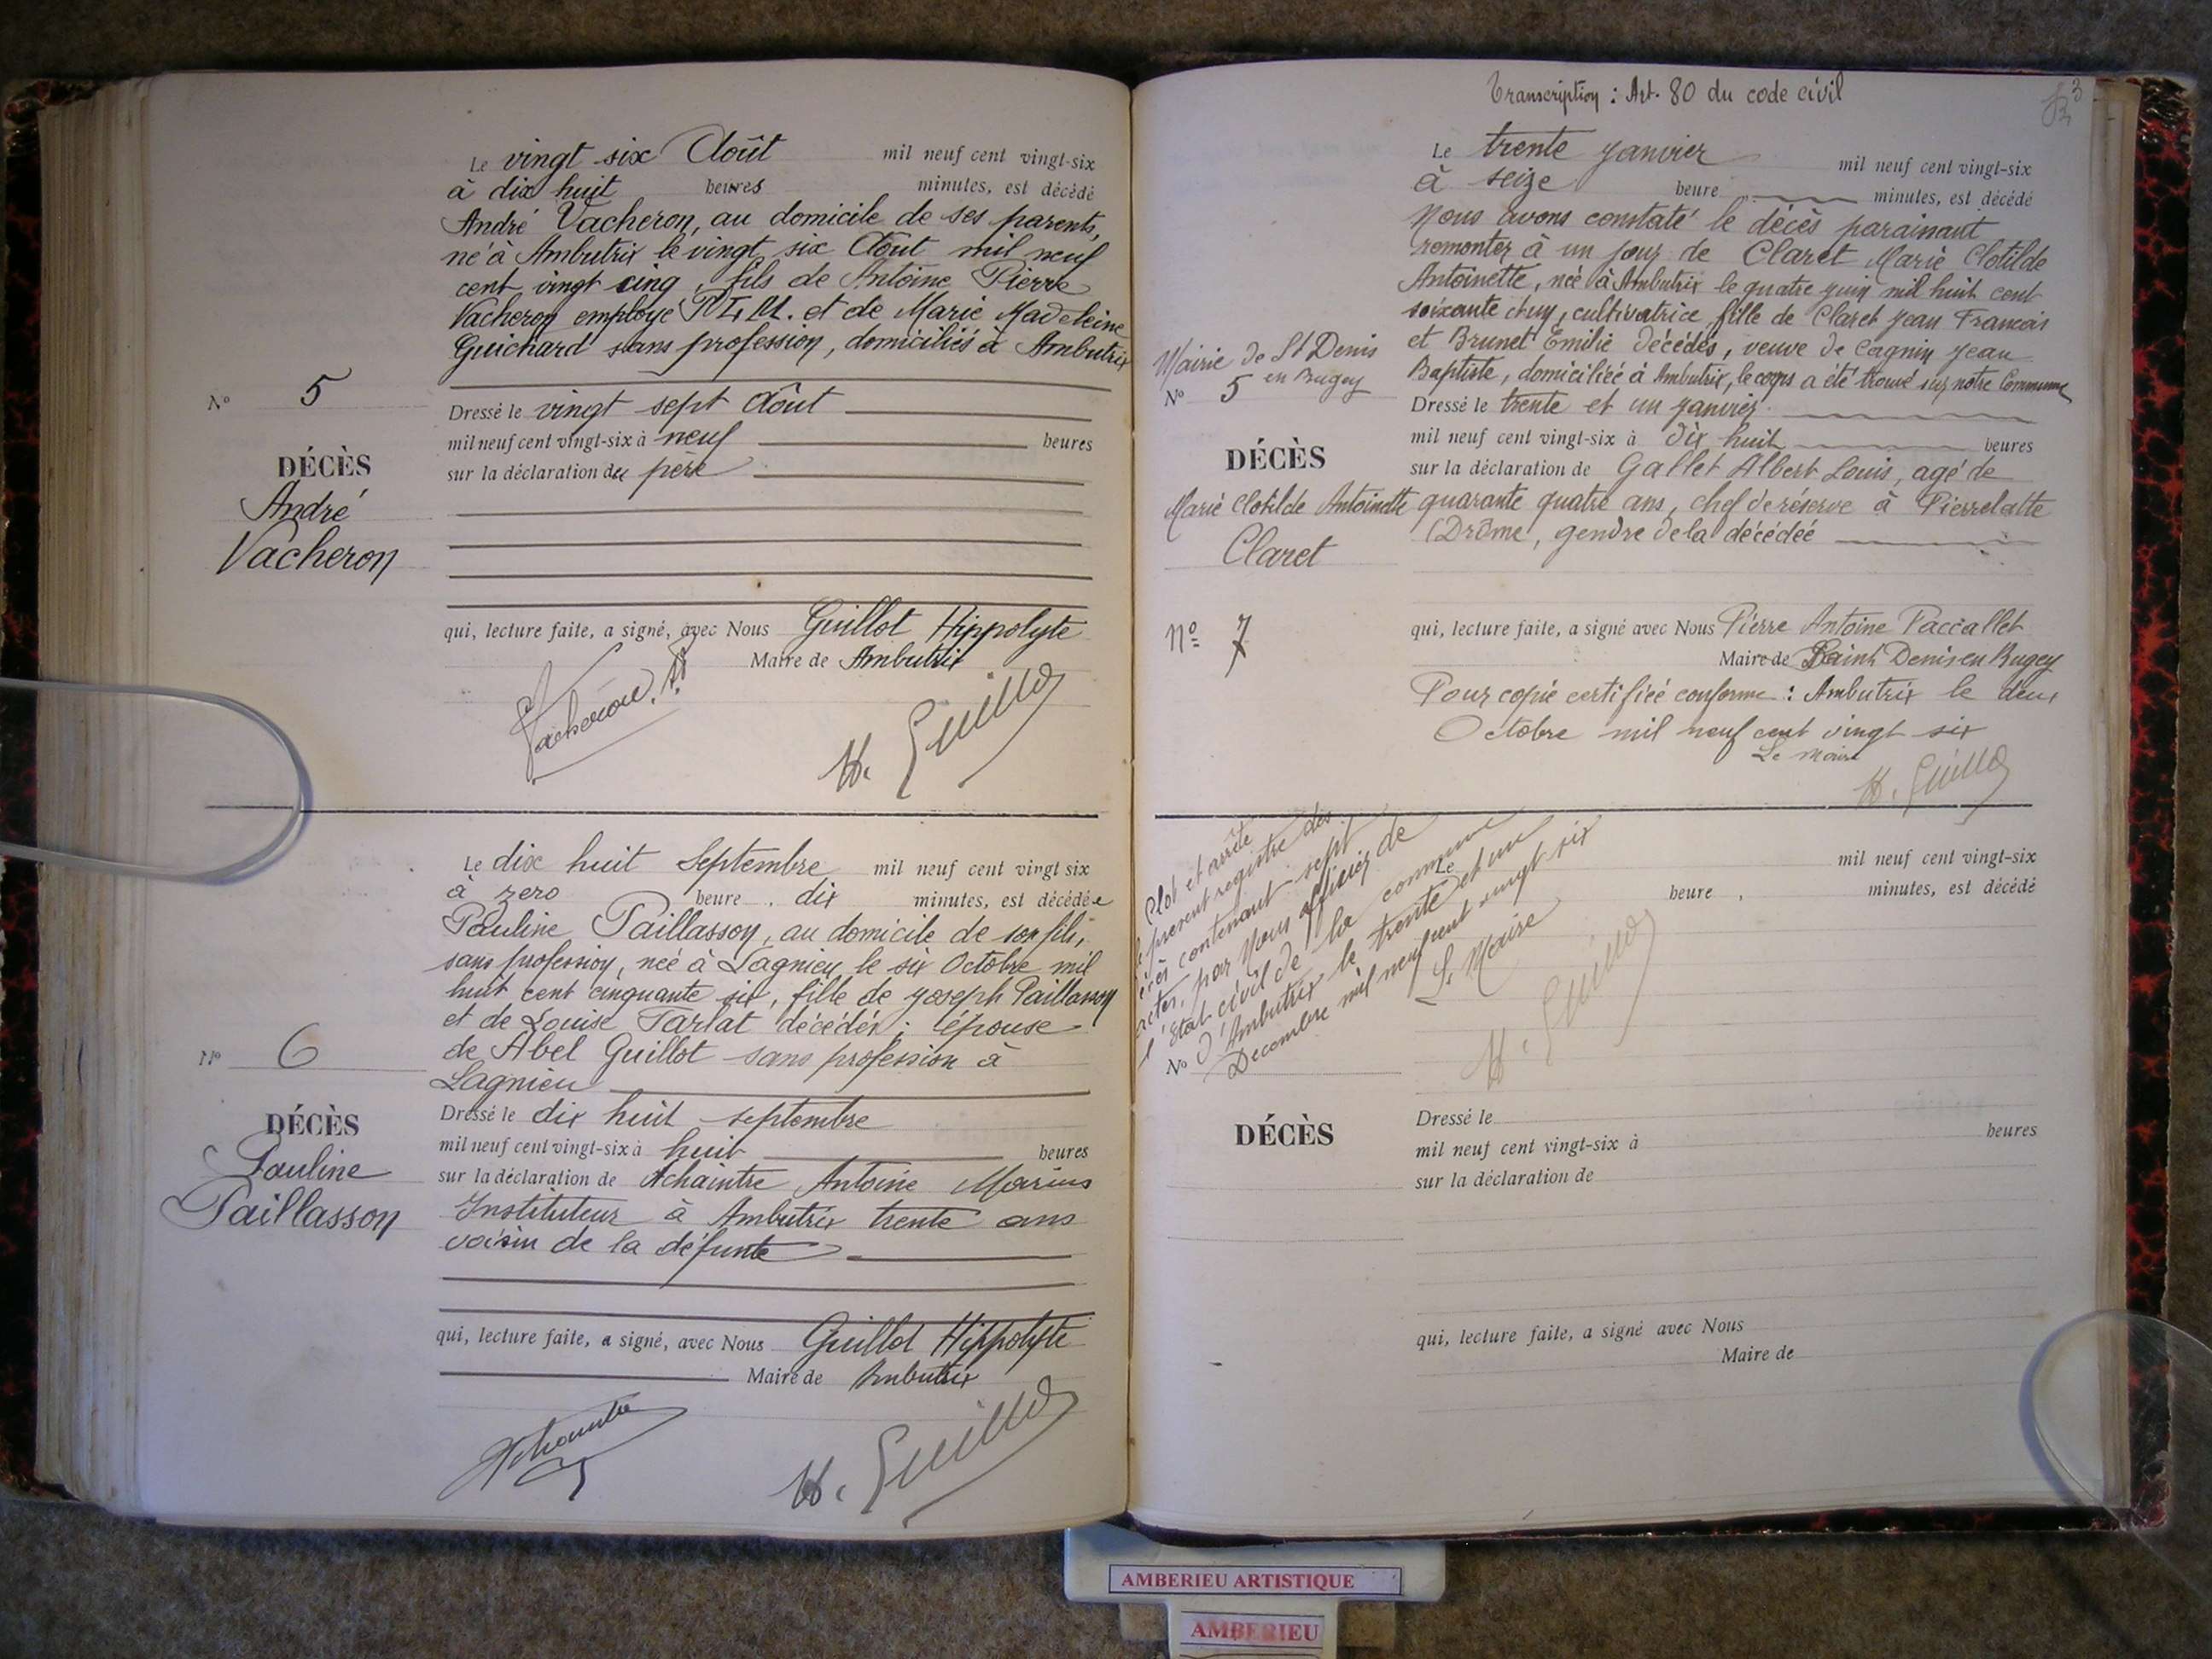 Le vingt six Août mil neuf cent vingt-six
à dix huit heures minutes, est décédé
André Vacheron, au domicile de ses parents,
né à Ambutrix le vingt six Août mil neuf
cent vingt cinq, fils de Antoine Pierre
Vacheron employé P.L.M. et de Marie Madeleine
Guichard sans profession, domiciliés à Ambutrix
No 5
Dressé le vingt sept Août
mil neuf cent vingt-six à neuf heures
DÉCÈS
sur la déclaration du père
André
Vacheron
qui, lecture faite, a signé, avec Nous Guillot Hippolyte
Maire de Ambutrix
Vacheron
H. Guillot
Le dix huit Septembre mil neuf cent vingt six
à zero heure, dix minutes, est décédée
Pauline Paillasson, au domicile de son fils,
sans profession, née à Lagnieu le six Octobre mil
huit cent cinquante six, fille de Joseph Paillasson
et de Louise Tarlat décédés; épouse
de Abel Guillot sans profession à
No 6
Lagnieu
DÉCÈS
Dressé le dix huit septembre
mil neuf cent vingt-six à huit heures
Pauline
Paillasson
sur la déclaration de Achaintre Antoine Marius
Instituteur à Ambutrix trente ans
voisin de la défunte
qui, lecture faite, a signé, avec Nous Guillot Hippolyte
Maire de Ambutrix
Achaintre
H. Guillot
Transcription : Art. 80 du code civil
Le trente janvier mil neuf cent vingt-six
à seize heure minutes, est décédé
Nous avons constaté le décès paraissant
remonter à un jour de Claret Marie Clotilde
Antoinette, née à Ambutrix le quatre juin mil huit cent
soixante et un, cultivatrice, fille de Claret Jean François
et Brunet Emilie décédés, veuve de Cognin Jean
Baptiste, domiciliée à Ambutrix, le corps a été trouvé sur notre Commune
Mairie de St Denis
en Bugey
No 5
Dressé le trente et un janvier
mil neuf cent vingt-six à dix huit heures
DÉCÈS
sur la déclaration de Gallet Albert Louis, agé de
quarante quatre ans, chef de réserve à Pierrelatte
(Drôme, gendre de la décédée
Marie Clotilde Antoinette
Claret
No 7
qui, lecture faite, a signé avec Nous Pierre Antoine Paccallet
Maire de Saint Denis en Bugey
Pour copie certifiée conforme : Ambutrix le deux
Octobre mil neuf cent vingt six
Le Maire
H. Guillot
Clot et arrêté
le présent registre des
décès contenant sept
actes, par Nous officier de
l'Etat civil de la commune
d'Ambutrix le trente et un
Decembre mil neuf cent vingt six
Le Maire
H. Guillot
Le mil neuf cent vingt-six
heure, minutes, est décédé
No
DÉCÈS
Dressé le
mil neuf cent vingt-six à heures
sur la déclaration de
qui, lecture faite, a signé avec Nous
Maire de
AMBERIEU ARTISTIQUE
AMBERIEU